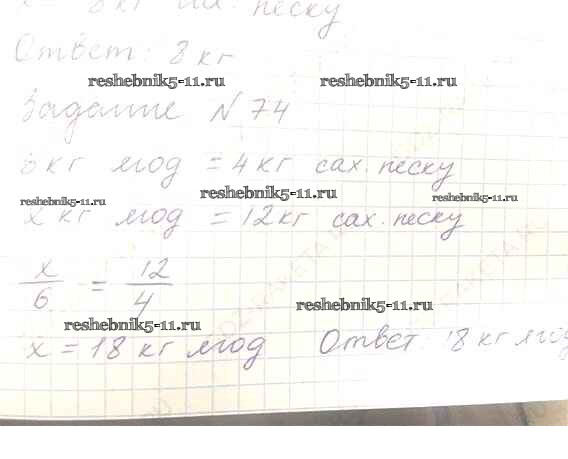 х = 8 кг сах. песку
Ответ: 8 кг
reshebnik5-11.ru reshebnik5-11.ru
Задание N 74
6 кг ягод = 4 кг сах. песку
reshebnik5-11.ru reshebnik5-11.ru reshebnik5-11.ru
х кг ягод = 12 кг сах. песку
х/6 = 12/4
reshebnik5-11.ru
reshebnik5-11.ru
х = 18 кг ягод Ответ: 18 кг ягод